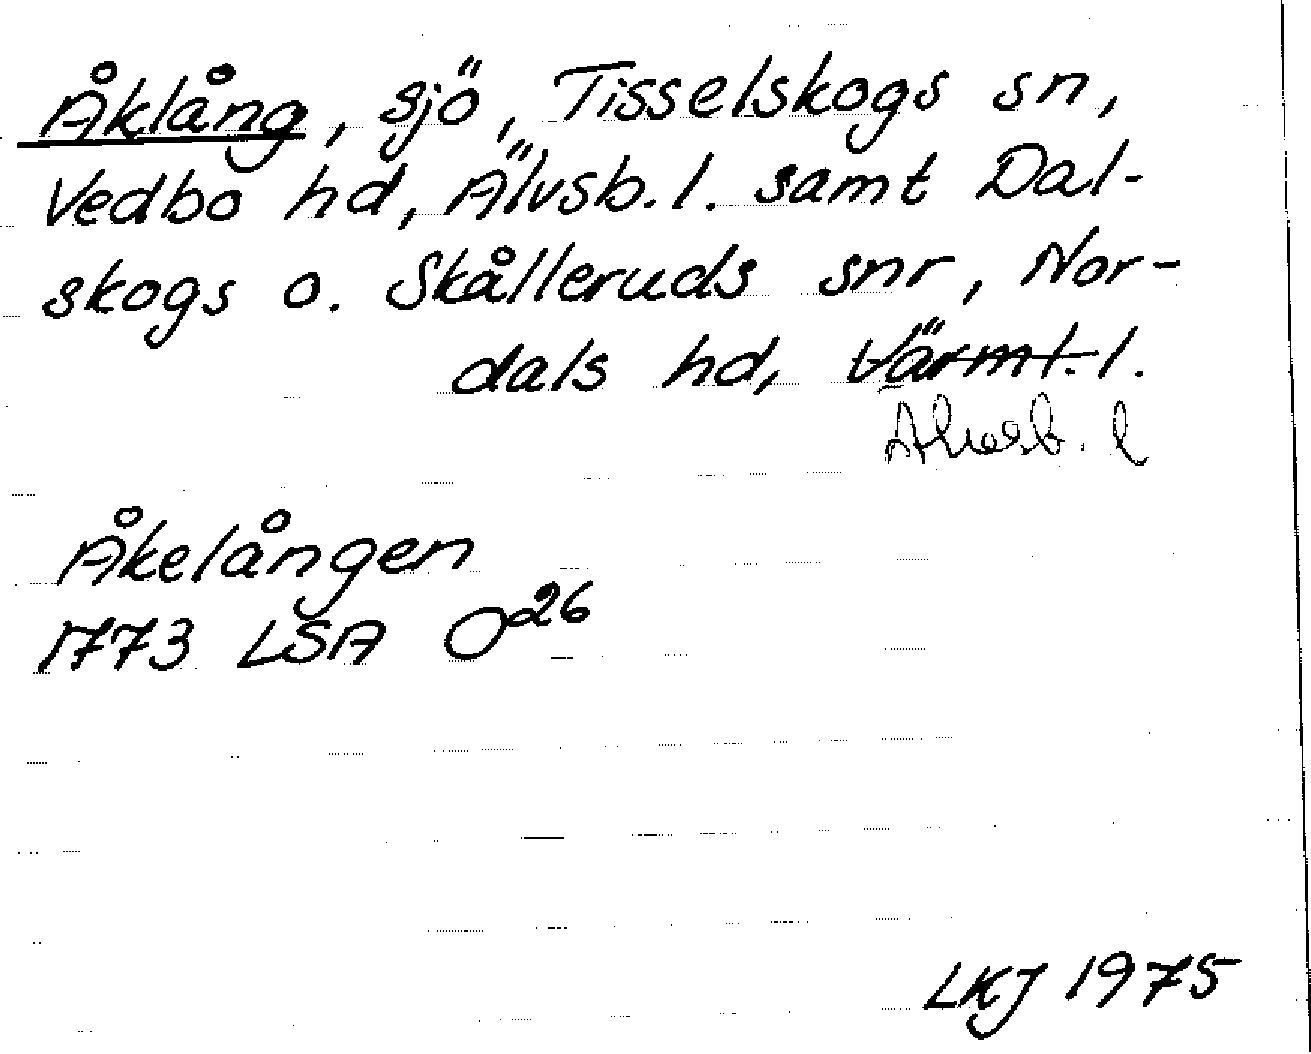 Åklång, sjö, Tisselskogs sn,
Vedbo hd, Älvsb. l. samt Dal-
skogs o. Skålleruds snr, Nor-
dals hd, Värml. l.
Älvsb. l
Åkelången
1773 LSA O26
LKJ 1975